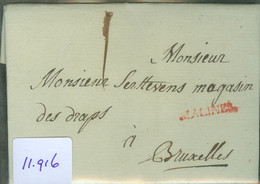 Monsieur
Monsieur Serstevens magasin
des draps
MALINES
à
Bruxelles
11.916